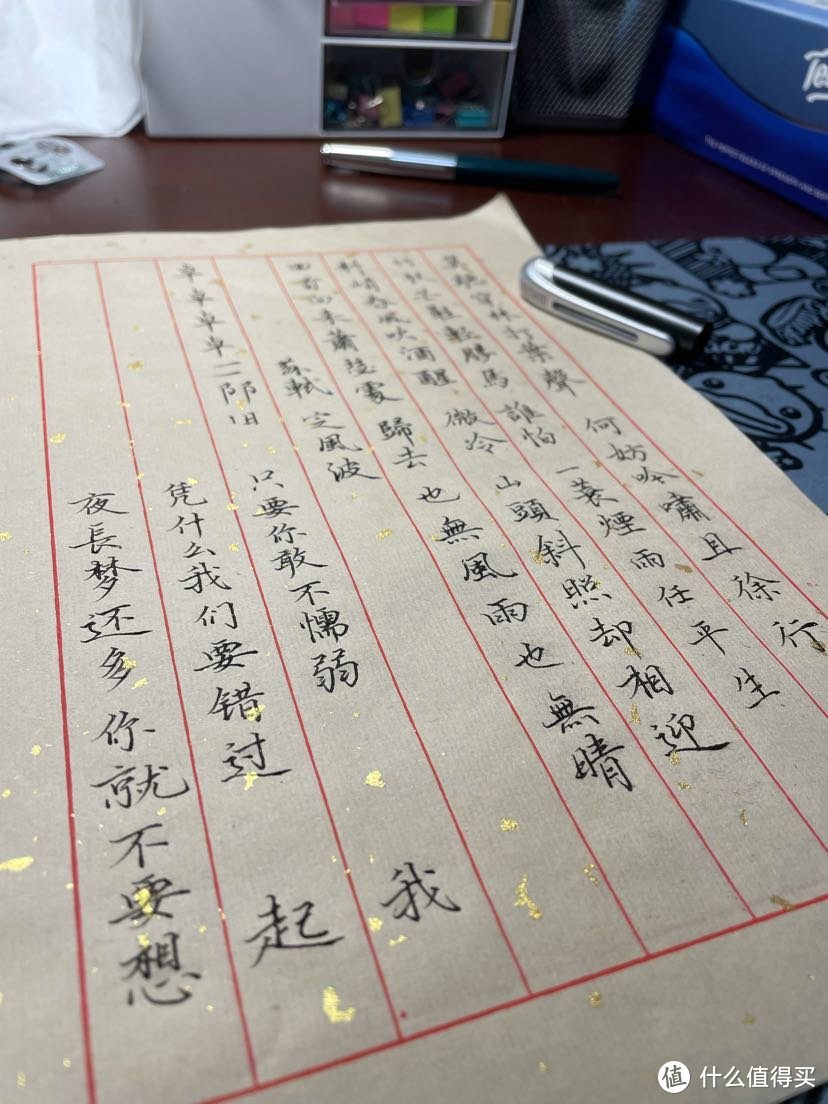 莫聽穿林打葉聲 何妨吟嘯且徐行
竹杖芒鞋輕勝馬 誰怕 一蓑煙雨任平生
料峭春風吹酒醒 微冷 山頭斜照却相迎
回首向来蕭瑟處 歸去 也無風雨也無晴
蘇軾 定風波
卓卓卓卓二 只要你敢不懦弱 我
凭什么我们要错过 起
夜長梦还多你就不要想
值 什么值得买